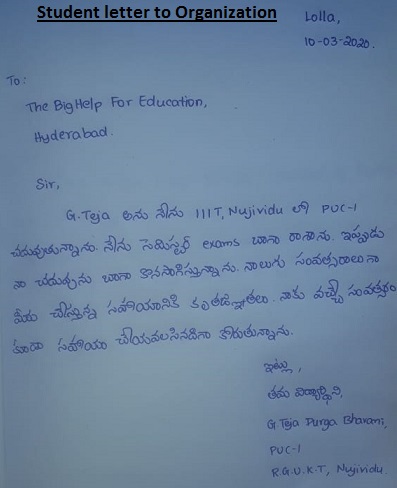 Student letter to Organization
Lolla,
10-03-2020.
To:
The BigHelp For Education,
Hyderabad.
Sir,
G.Teja అను నేను IIIT, Nujividu లో PUC-1
చదువుతున్నాను. నేను సెమిస్టర్ exams బాగా రాశాను. ఇప్పుడు
నా చదువును బాగా కొనసాగిస్తున్నాను. నాలుగు సంవత్సరాలుగా
మీరు చేస్తున్న సహాయానికి కృతజ్ఞతలు. నాకు వచ్చే సంవత్సరం
కూడా సహాయం చేయవలసినదిగా కోరుతున్నాను.
ఇట్లు,
తమ విద్యార్థిని,
G Teja Durga Bhavani,
PUC-1
R.G.U.K.T, Nujividu.